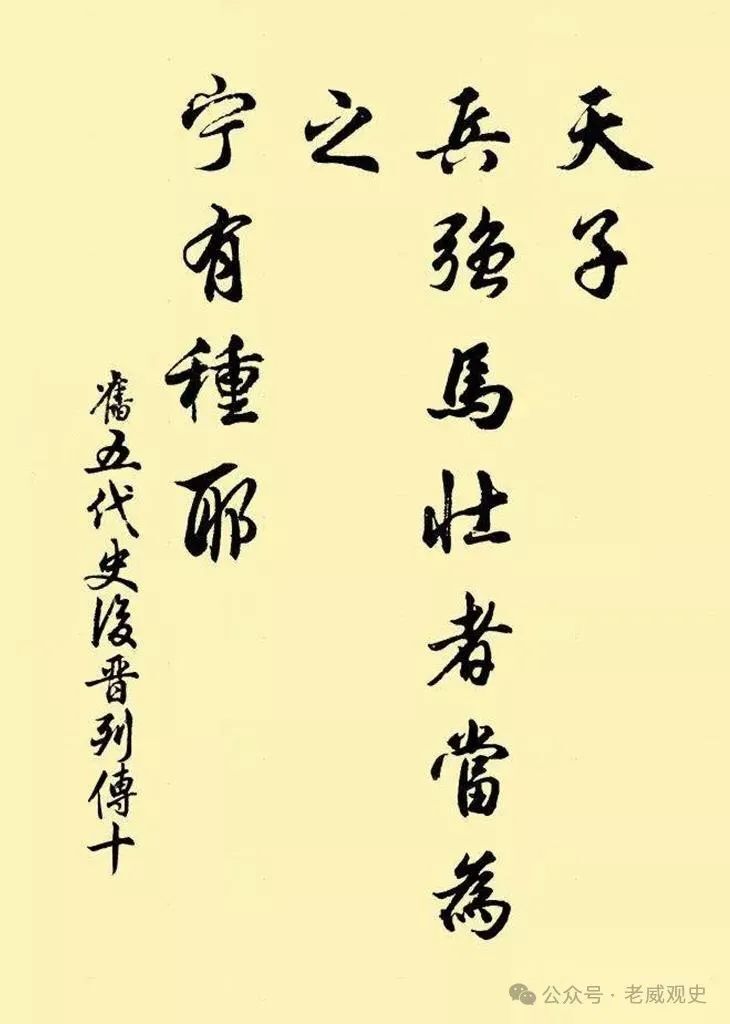 天子
兵強馬壯者當為
之
宁有種耶
舊五代史後晋列傳十
公众号·老威观史